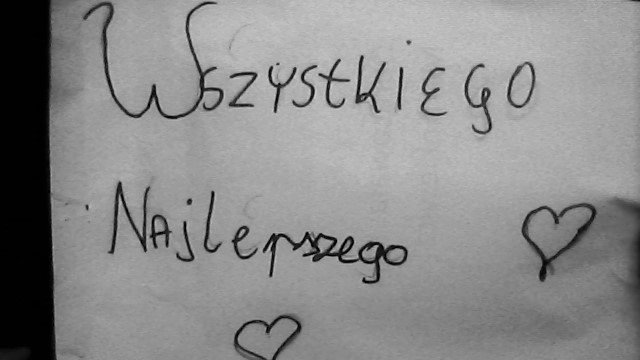 Wszystkiego
Najlepszego